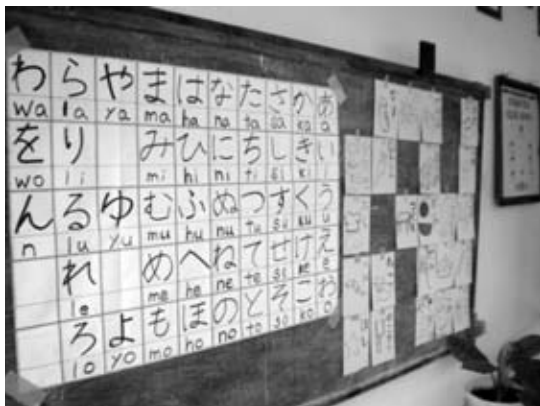 わ ら や ま は な た さ か あ
wa la ya ma ha na ta sa ka a
を り み ひ に ち し き い
wo li mi hi ni ti si ki i
ん る ゆ む ふ ぬ つ す く う
n lu yu mu hu nu tu su ku u
れ め へ ね て せ け え
le me he ne te se ke e
ろ よ も ほ の と そ こ お
lo yo mo ho no to so ko o